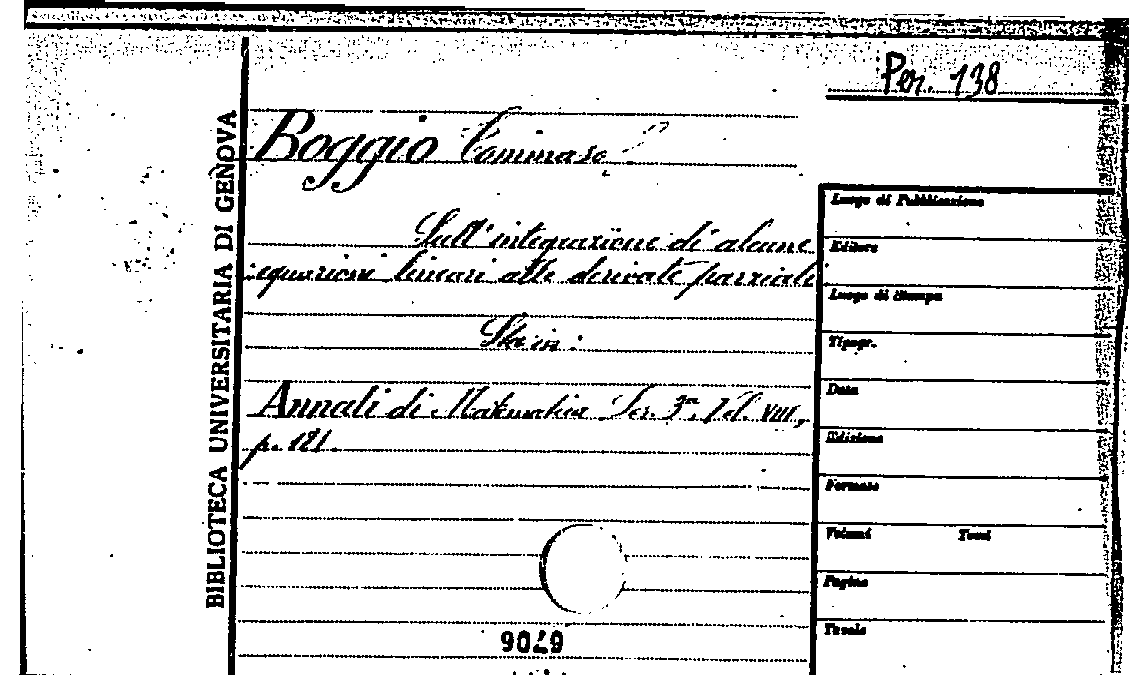 Per. 138
BIBLIOTECA UNIVERSITARIA DI GENOVA
Boggio Tommaso
Sull'integrazione di alcune
equazioni lineari alle derivate parziali.
Sta in:
Annali di Matematica Ser. 3ª. Vol. VIII,
p. 181.
Luogo di Pubblicazione
Editore
Luogo di Stampa
Tipogr.
Data
Edizione
Formato
Volumi Tomi
Pagine
Tavole